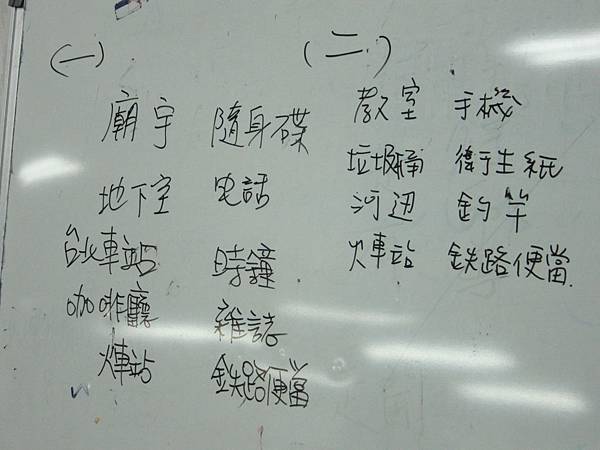 (一)
廟宇 隨身碟
地下室 电話
台北車站 時鐘
咖啡廳 雜誌
火車站 鉄路便當
(二)
教室 手機
垃圾桶 衛生紙
河边 釣竿
火車站 鉄路便當